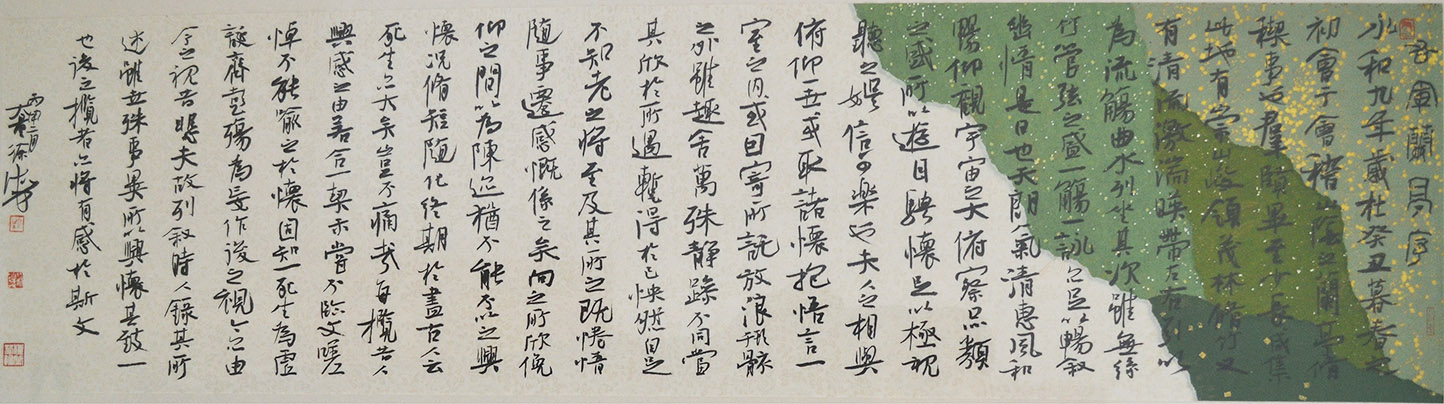 右軍蘭亭序
永和九年歲在癸丑暮春之
初會于會稽山陰之蘭亭脩
禊事也羣賢畢至少長咸集
此地有崇山峻領茂林脩竹又
有清流激湍暎帶左右引以
為流觴曲水列坐其次雖無絲
竹管弦之盛一觴一詠亦足以暢敘
幽情是日也天朗氣清惠風和
暢仰觀宇宙之大俯察品類
之盛所以遊目騁懷足以極視
聽之娛信可樂也夫人之相與
俯仰一世或取諸懷抱悟言一
室之內或因寄所託放浪形骸
之外雖趣舍萬殊靜躁不同當
其欣於所遇暫得於己怏然自足
不知老之將至及其所之既惓情
隨事遷感慨係之矣向之所欣俛
仰之間以為陳迹猶不能不以之興
懷況脩短隨化終期於盡古人云
死生亦大矣豈不痛哉每攬昔人
興感之由若合一契未嘗不臨文嗟
悼不能喻之於懷固知一死生為虛
誕齊彭殤為妄作後之視今亦由
今之視昔悲夫故列敘時人錄其所
述雖世殊事異所以興懷其致一
也後之攬者亦將有感於斯文
丙申二月